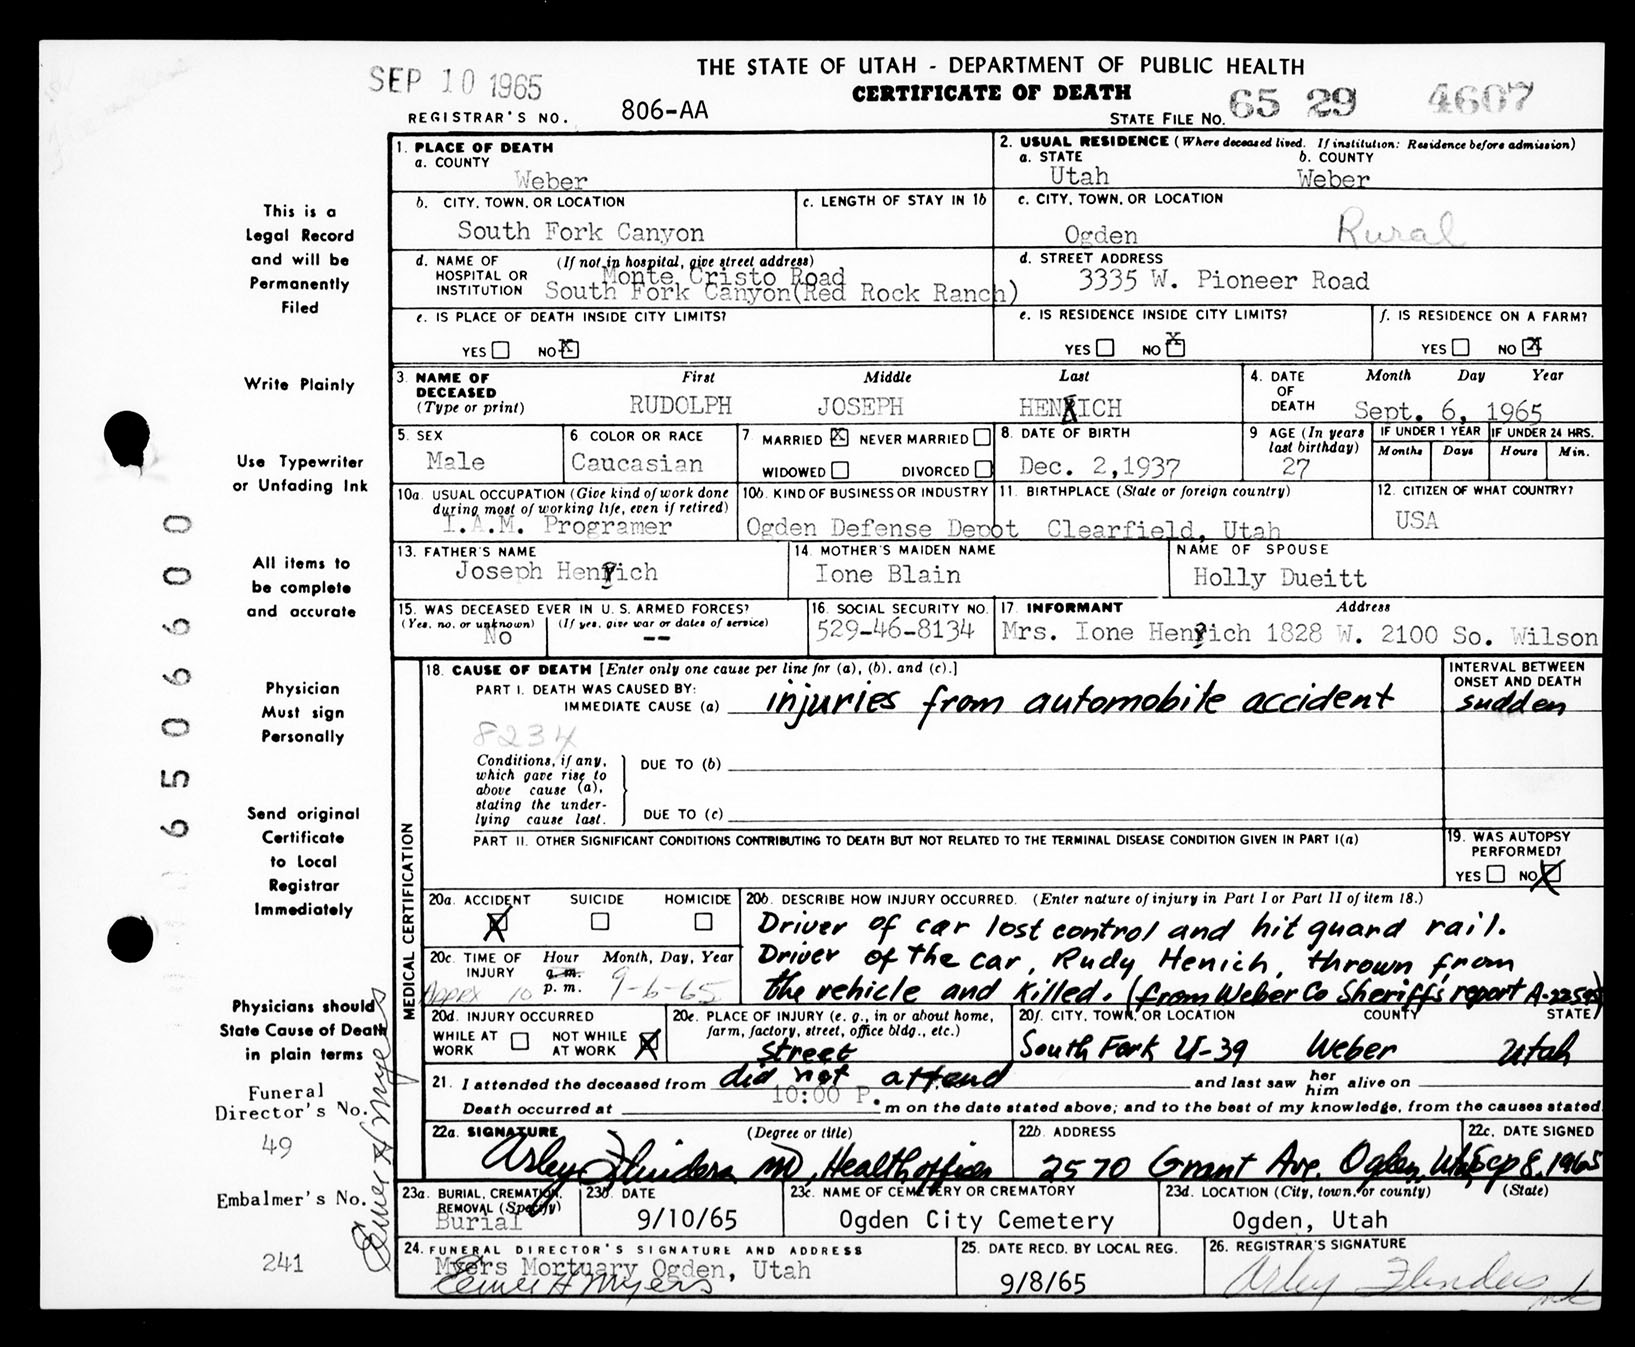 THE STATE OF UTAH - DEPARTMENT OF PUBLIC HEALTH
SEP 10 1965
CERTIFICATE OF DEATH
REGISTRAR'S NO. 806-AA
STATE FILE NO. 65 29 4607
This is a
Legal Record
and will be
Permanently
Filed
Write Plainly
Use Typewriter
or Unfading Ink
All items to
be complete
and accurate
Physician
Must sign
Personally
Send original
Certificate
to Local
Registrar
Immediately
Physicians should
State Cause of Death
in plain terms
Funeral
Director's No.
49
Embalmer's No.
241
Elmer H Myers
6 5 0 6 6 0 0
1. PLACE OF DEATH
a. COUNTY
Weber
2. USUAL RESIDENCE (Where deceased lived. If institution: Residence before admission)
a. STATE b. COUNTY
Utah Weber
b. CITY, TOWN, OR LOCATION
South Fork Canyon
c. LENGTH OF STAY IN 1b
c. CITY, TOWN, OR LOCATION
Ogden Rural
d. NAME OF HOSPITAL OR INSTITUTION (If not in hospital, give street address)
Monte Cristo Road
South Fork Canyon(Red Rock Ranch)
d. STREET ADDRESS
3335 W. Pioneer Road
e. IS PLACE OF DEATH INSIDE CITY LIMITS?
YES NO X
e. IS RESIDENCE INSIDE CITY LIMITS?
YES NO X
f. IS RESIDENCE ON A FARM?
YES NO X
3. NAME OF DECEASED (Type or print) First Middle Last
RUDOLPH JOSEPH HENICH
4. DATE OF DEATH Month Day Year
Sept. 6, 1965
5. SEX
Male
6 COLOR OR RACE
Caucasian
7 MARRIED X NEVER MARRIED
WIDOWED DIVORCED
8. DATE OF BIRTH
Dec. 2,1937
9 AGE (In years last birthday)
27
IF UNDER 1 YEAR IF UNDER 24 HRS.
Months Days Hours Min.
10a. USUAL OCCUPATION (Give kind of work done during most of working life, even if retired)
I.A.M. Programer
10b. KIND OF BUSINESS OR INDUSTRY
Ogden Defense Depot
11. BIRTHPLACE (State or foreign country)
Clearfield, Utah
12. CITIZEN OF WHAT COUNTRY?
USA
13. FATHER'S NAME
Joseph Henich
14. MOTHER'S MAIDEN NAME
Ione Blain
NAME OF SPOUSE
Holly Dueitt
15. WAS DECEASED EVER IN U. S. ARMED FORCES?
(Yes, no, or unknown) (If yes, give war or dates of service)
No --
16. SOCIAL SECURITY NO.
529-46-8134
17. INFORMANT Address
Mrs. Ione Henich 1828 W. 2100 So. Wilson
MEDICAL CERTIFICATION
18. CAUSE OF DEATH [Enter only one cause per line for (a), (b), and (c).]
PART I. DEATH WAS CAUSED BY:
IMMEDIATE CAUSE (a) injuries from automobile accident
INTERVAL BETWEEN ONSET AND DEATH
sudden
8234
Conditions, if any, which gave rise to above cause (a), stating the underlying cause last.
DUE TO (b)
DUE TO (c)
PART II. OTHER SIGNIFICANT CONDITIONS CONTRIBUTING TO DEATH BUT NOT RELATED TO THE TERMINAL DISEASE CONDITION GIVEN IN PART I(a)
19. WAS AUTOPSY PERFORMED?
YES NO X
20a. ACCIDENT SUICIDE HOMICIDE
X
20b. DESCRIBE HOW INJURY OCCURRED. (Enter nature of injury in Part I or Part II of item 18.)
Driver of car lost control and hit guard rail.
Driver of the car, Rudy Henich, thrown from
the vehicle and killed. (from Weber Co Sheriff's report
20c. TIME OF INJURY Hour Month, Day, Year
a.m.
p. m.
Appex 10 9-6-65
20d. INJURY OCCURRED
WHILE AT WORK NOT WHILE AT WORK X
20e. PLACE OF INJURY (e. g., in or about home, farm, factory, street, office bldg., etc.)
street
20f. CITY, TOWN, OR LOCATION COUNTY STATE
South Fork U-39 Weber Utah
21. I attended the deceased from did not attend and last saw her him alive on
Death occurred at 10:00 P. m on the date stated above; and to the best of my knowledge, from the causes stated.
22a. SIGNATURE (Degree or title)
Arley Flinders MD, Health officer
22b. ADDRESS
2570 Grant Ave. Ogden, Utah
22c. DATE SIGNED
Sep 8, 1965
23a. BURIAL, CREMATION, REMOVAL (Specify)
Burial
23b. DATE
9/10/65
23c. NAME OF CEMETERY OR CREMATORY
Ogden City Cemetery
23d. LOCATION (City, town, or county) (State)
Ogden, Utah
24. FUNERAL DIRECTOR'S SIGNATURE AND ADDRESS
Myers Mortuary Ogden, Utah
Elmer H Myers
25. DATE RECD. BY LOCAL REG.
9/8/65
26. REGISTRAR'S SIGNATURE
Arley Flinders